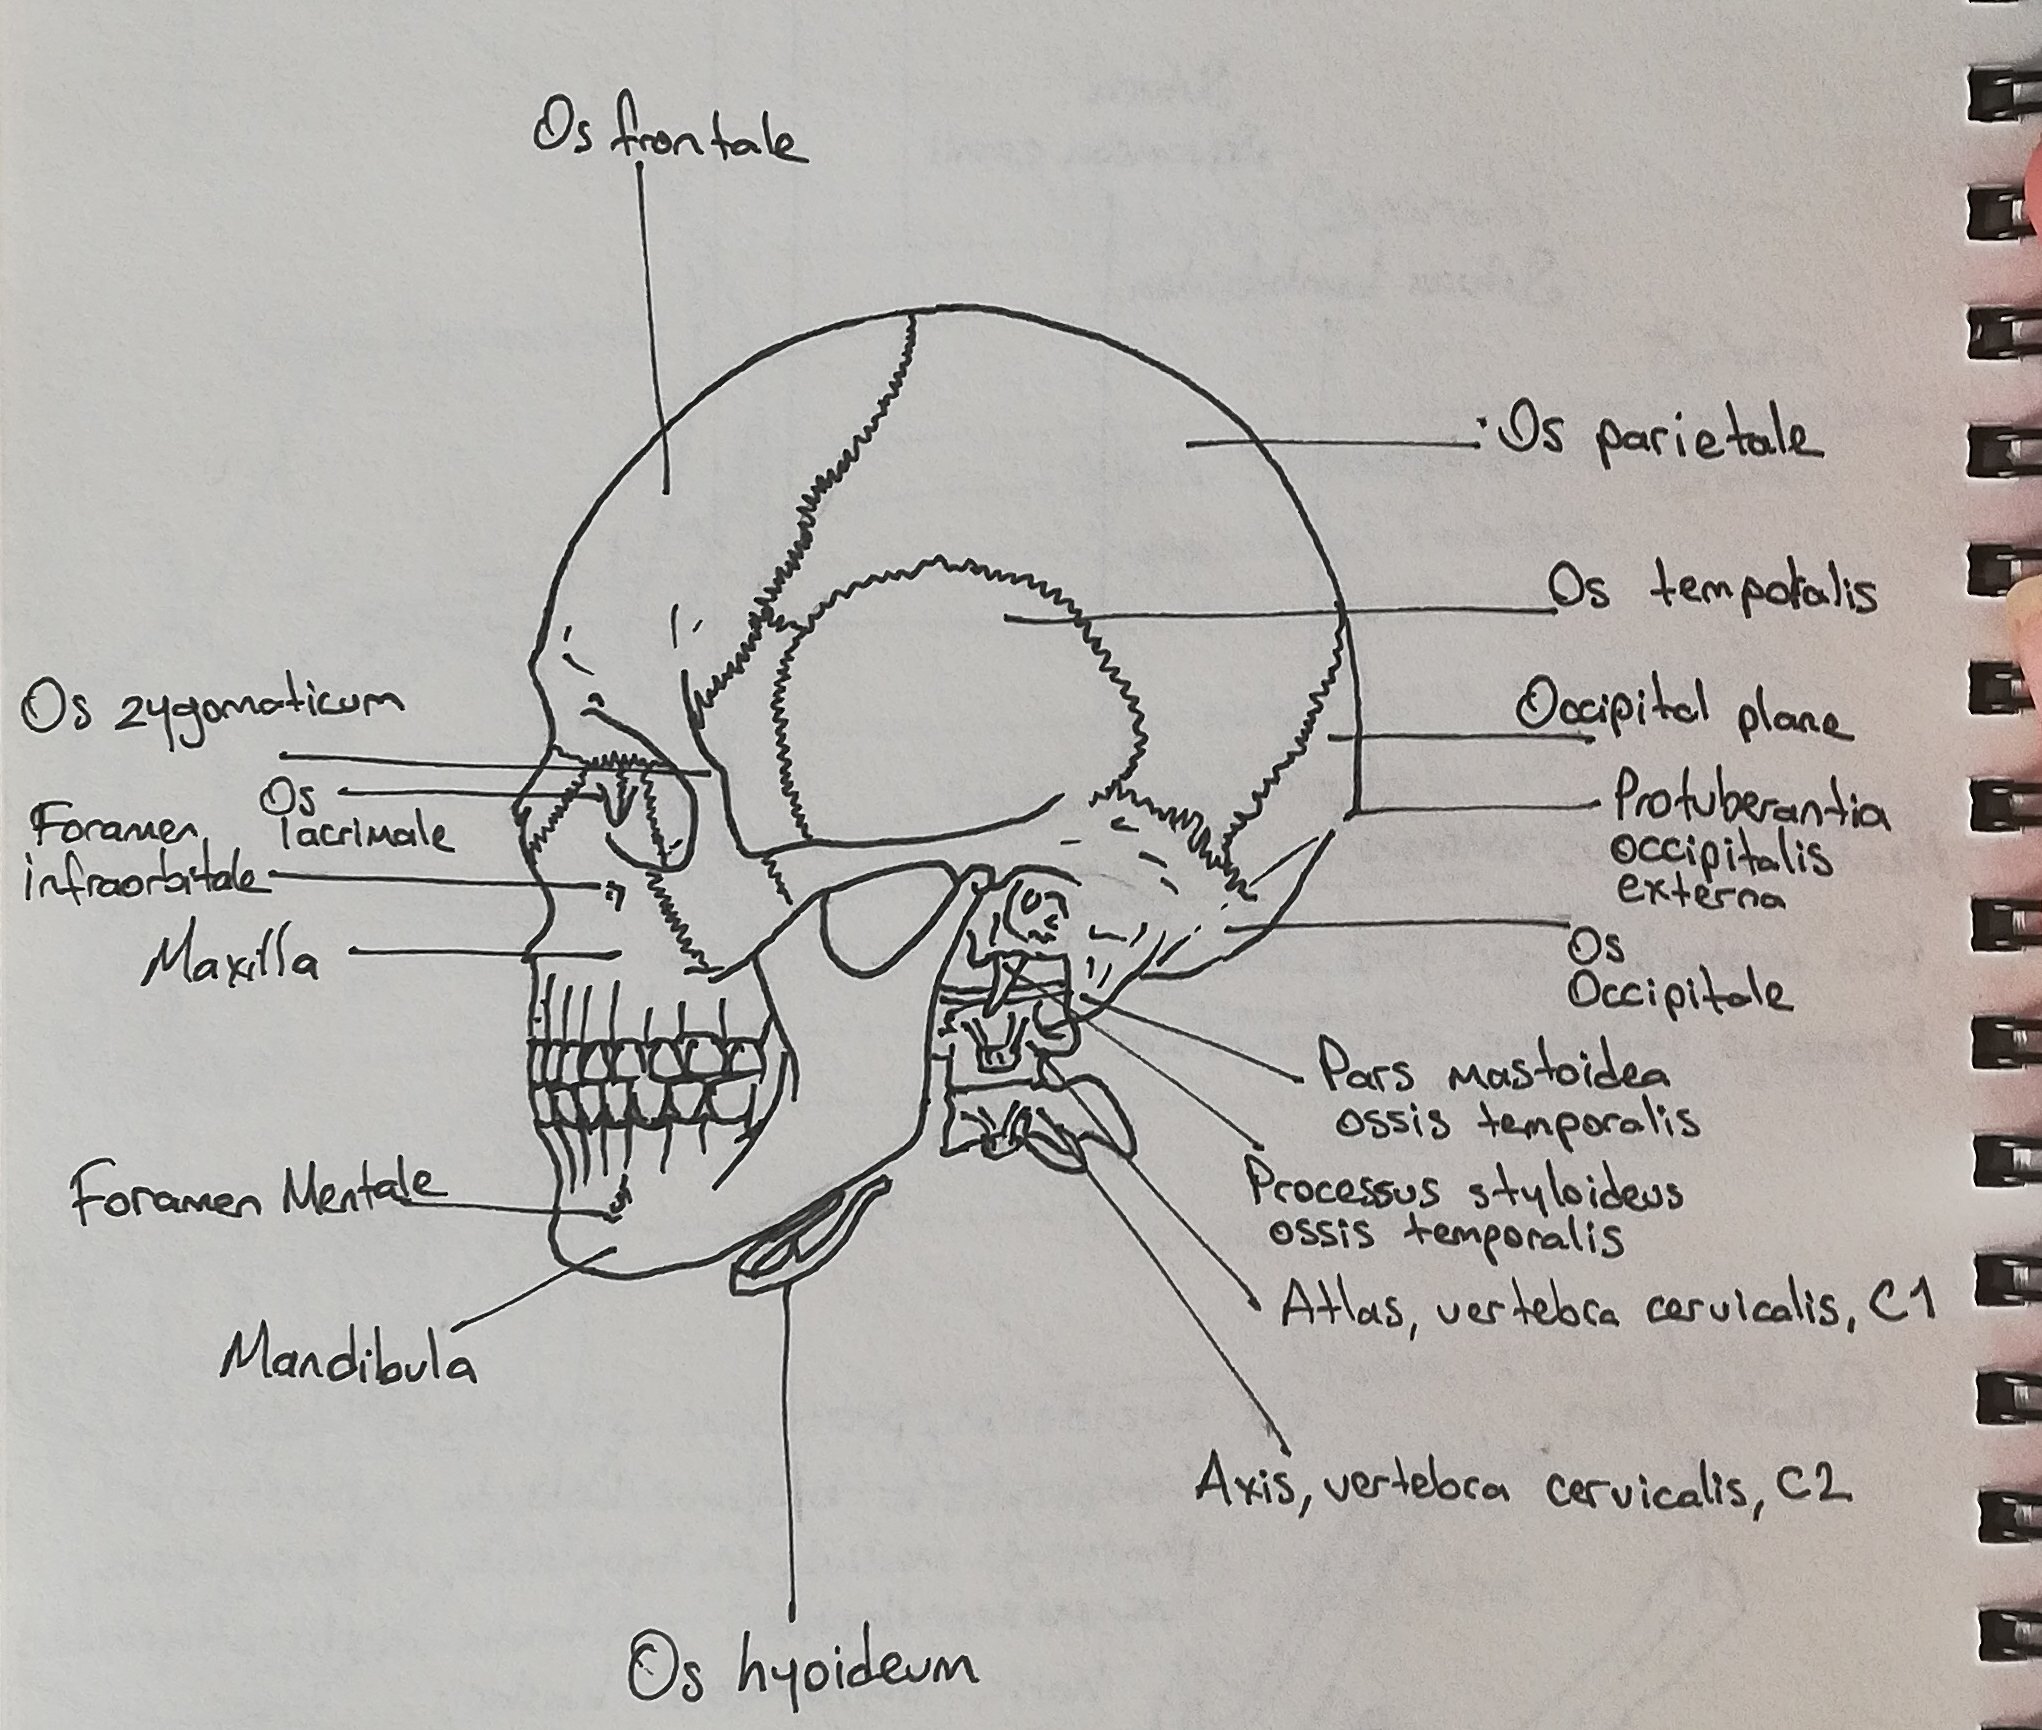 Os frontale
Os parietale
Os temporalis
Os zygomaticum
Occipital plane
Os
lacrimale
Foramen
infraorbitale
Protuberantia
occipitalis
externa
Maxilla
Os
Occipitale
Pars mastoidea
ossis temporalis
Foramen Mentale
Processus styloideus
ossis temporalis
Atlas, vertebra cervicalis, C1
Mandibula
Axis, vertebra cervicalis, C2
Os hyoideum